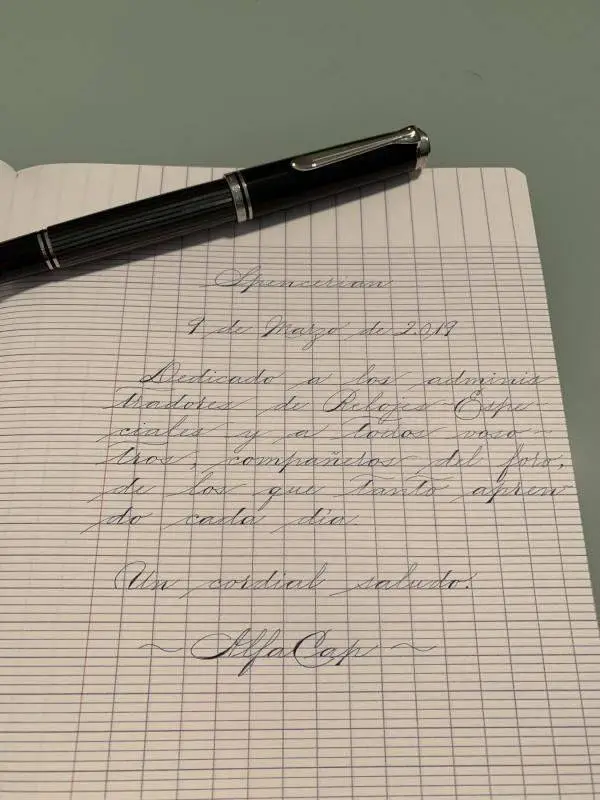 Spencerian
9 de Marzo de 2.019
Dedicado a los adminis
tradores de Relojes Espe-
ciales y a todos voso-
tros, compañeros del foro,
de los que tanto apren
do cada día.
Un cordial saludo.
~ AlfaCap ~